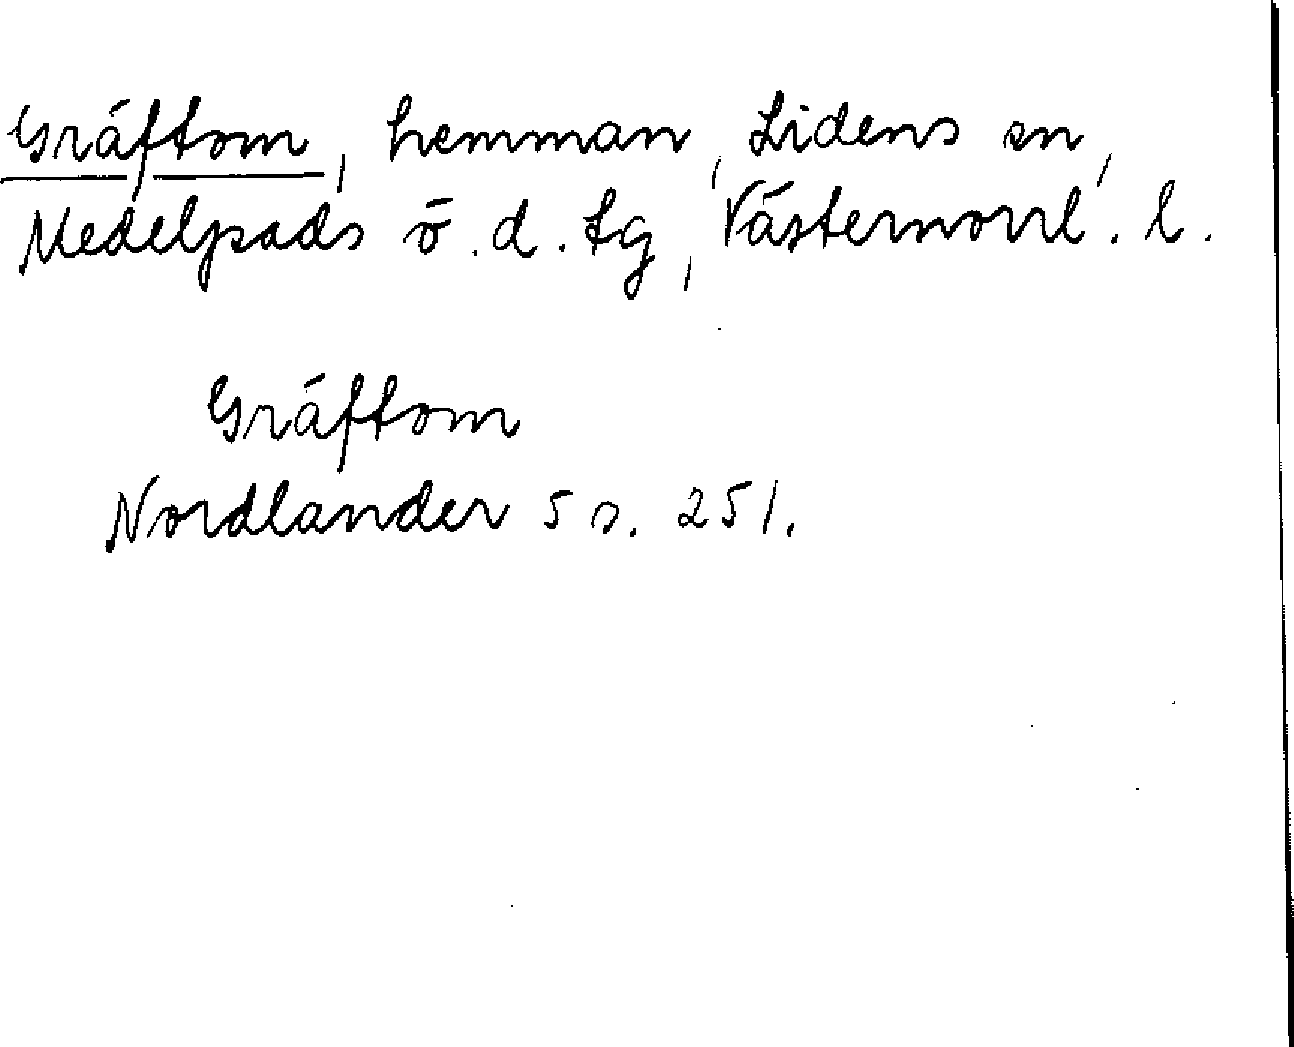 Gräftom, hemman, Lidens sn,
Medelpads ö. d. tg, Västernorrl. l.
Gräftom
Nordlander 5 s. 251.